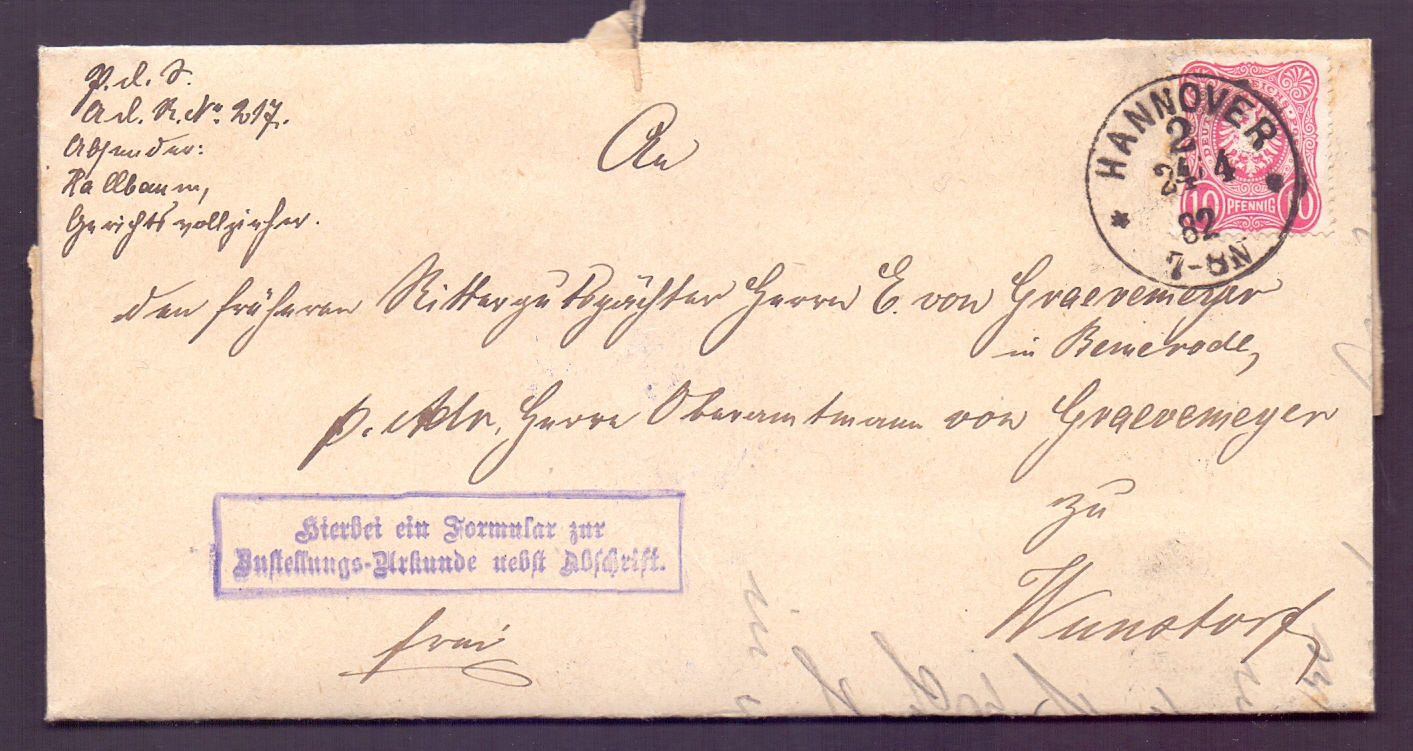 P. d. S.
A d. R. No. 217.
Absender:
Hallbaum,
Gerichtsvollzieher.
An
den früheren Rittergutspächter Herrn E. von Graevemeyer
in Bemerode,
p. Adr. Herrn Oberamtmann von Graevemeyer
zu
Wunstorf
frei
Hierbei ein Formular zur
Zustellungs-Urkunde nebst Abschrift.
HANNOVER
2
24 4
82
7-8N
10 PFENNIG 10